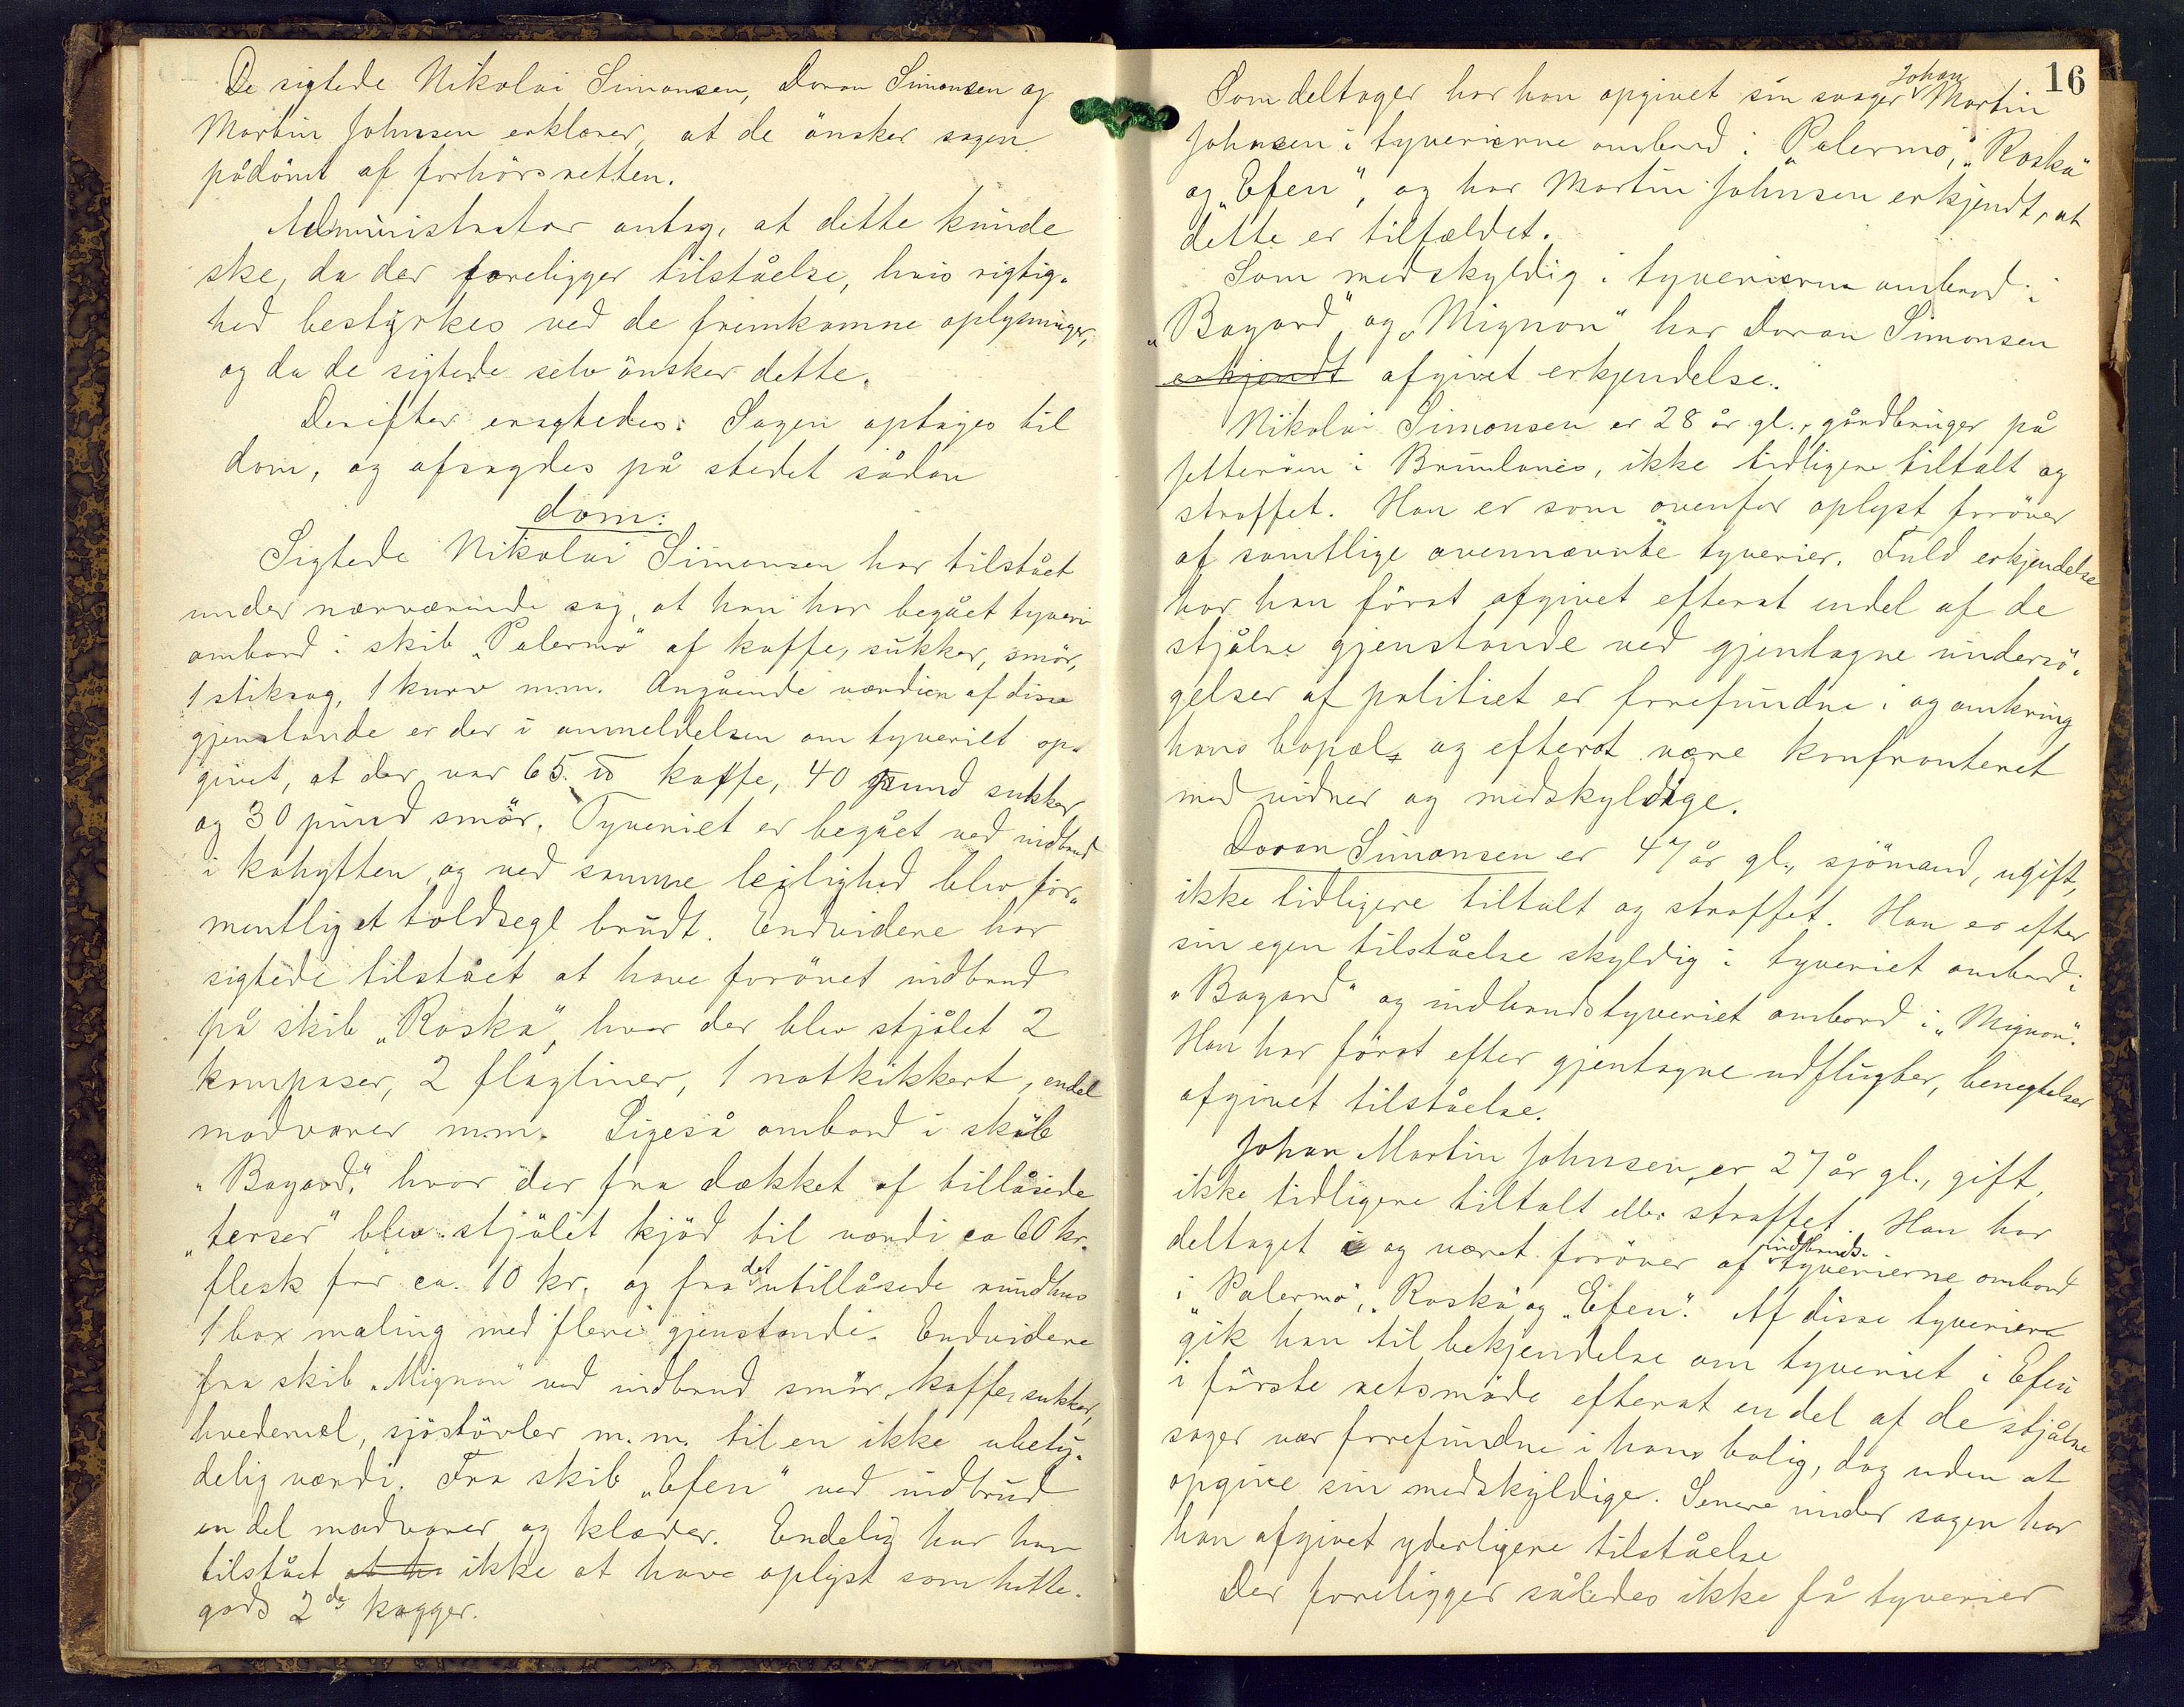 De sigtede Nikolai Simonsen, Doran Simonsen og
Martin Johnsen erklærer, at de önsker sagen
pådömt af forhörsretten.
Administrator antog, at dette kunde
ske, da der foreligger tilståelse, hvis rigtig-
hed bestyrkes ved de fremkomne oplysninger,
og da de sigtede selv önsker dette.
Derefter eragtedes: Sagen optages til
dom, og afsagdes på stedet sådan
dom:
Sigtede Nikolai Simonsen har tilstået
under nærværende sag, at han har begået tyveri
ombord i skib „Palermo“ af kaffe, sukker, smör,
1 stiksag, 1 kurv m.m. Angående værdien af disse
gjenstande er der i anmeldelsen om tyveriet op-
givet, at der var 65 ℔ kaffe, 40 pund sukker
og 30 pund smör. Tyveriet er begået ved indbrud
i kahytten, og ved samme leilighed blev for-
mentlig et toldsegl brudt. Endvidere har
sigtede tilstået at have forövet indbrud
på skib „Roska“, hvor der blev stjålet 2
kompaser, 2 flagliner, 1 natkikkert, endel
madvarer m.m. Ligeså ombord i skib
„Bayard“, hvor der fra dækket af tillåsede
„terser“ blev stjålet kjöd til værdi ca 60 kr.
flesk for ca. 10 kr. og fra det utillåsede rundhus
1 box maling med flere gjenstande. Endvidere
fra skib „Mignon“ ved indbrud smör, kaffe, sukker,
hvedemel, sjöstövler m.m. til en ikke ubety-
delig værdi. Fra skib „Efeu“ ved indbrud
en del madvarer og klæder. Endelig har han
tilstået at ha ikke at have oplyst som hitte-
gods 2de kagger.
16
Som deltager har han opgivet sin svager Johan Martin
Johnsen i tyverierne ombord i „Palermo“, „Roska“
og „Efeu“, og har Martin Johnsen erkjendt, at
dette er tilfældet.
Som medskyldig i tyverierne ombord i
„Bayard“ og „Mignon“ har Doran Simonsen
erkjendt afgivet erkjendelse.
Nikolai Simonsen er 28 år gl., gårdbruger på
Jetteröen i Brunlanes, ikke tidligere tiltalt og
straffet. Han er som ovenfor oplyst foröver
af samtlige ovennævnte tyverier. Fuld erkjendelse
har han först afgivet efterat endel af de
stjålne gjenstande ved gjentagne undersö-
gelser af politiet er forefundne i og omkring
hans bopæl, og efterat være konfronteret
med vidner og medskyldige.
Doran Simonsen er 47 år gl., sjömand, ugift,
ikke tidligere tiltalt og straffet. Han er efter
sin egen tilståelse skyldig i tyveriet ombord i
„Bayard“ og indbrudstyveriet ombord i „Mignon“.
Han har först efter gjentagne udflugter, benegtelser
afgivet tilståelse.
Johan Martin Johnsen, er 27 år gl., gift,
ikke tidligere tiltalt eller straffet. Han har
deltaget i og været foröver af indbruds-tyverierne ombord
i „Palermo“, „Roska“ og „Efeu“. Af disse tyverier
gik han til bekjendelse om tyveriet i Efeu
i förste retsmöde efterat en del af de stjålne
sager var forefundne i hans bolig, dog uden at
opgive sin medskyldige. Senere under sagen har
han afgivet yderligere tilståelse
Der foreligger således ikke få tyverier